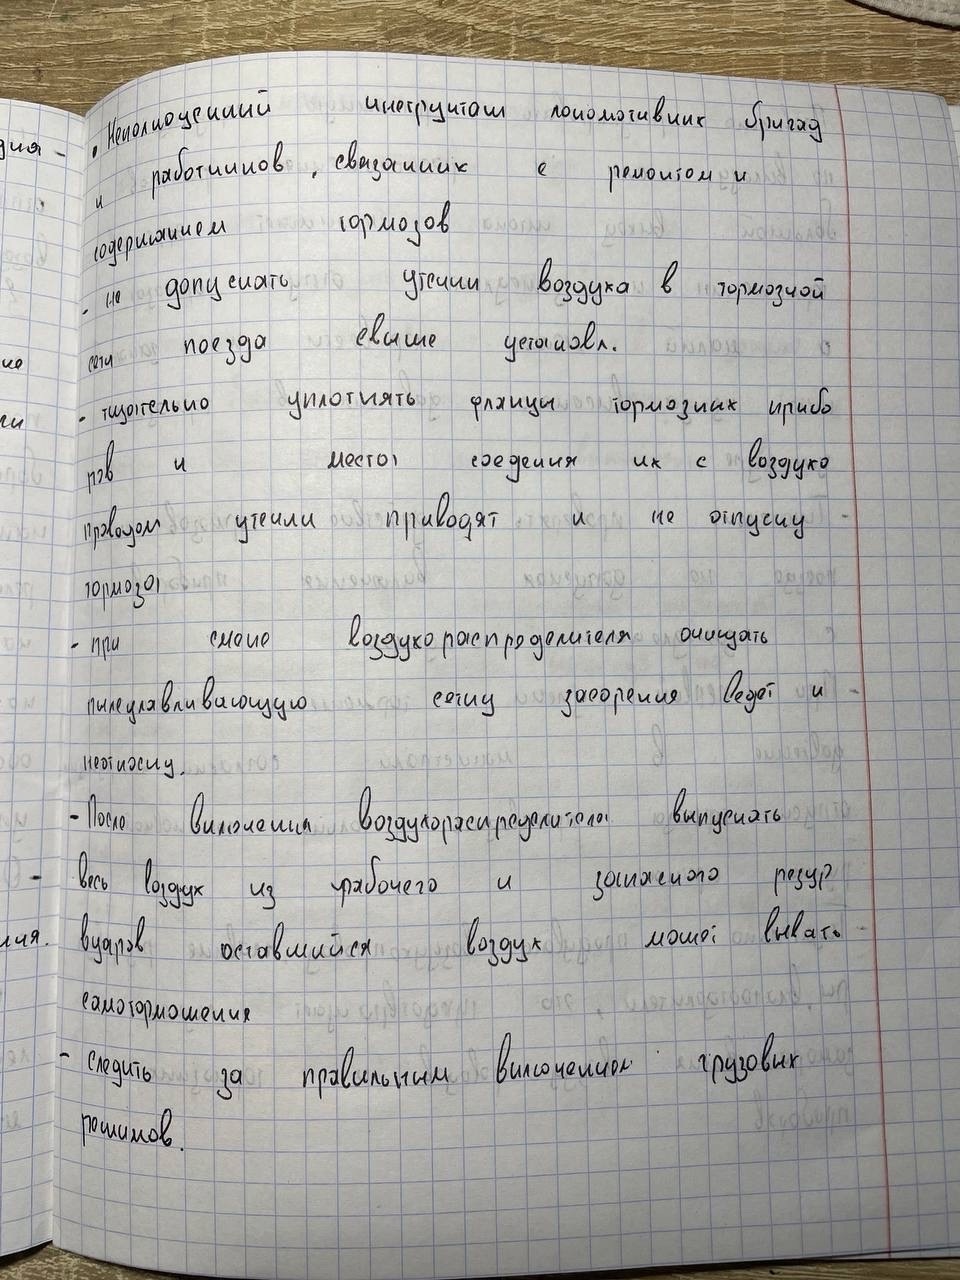 . Неполноценний инструкташ локомотивник бригад
и работников, связанник с ремонтом и
содержанием тормозов
- не допускать утечки воздуха в тормозной
сети поезда свыше установл.
- тщательно уплотнять фланцы тормозник прибо
ров и места соедения их с воздухо
проводом утечки приводят и не отпуску
тормоза
- при смене воздухораспределителя очищать
пылеулавливающую сетку засорения ведет и
неотпуску.
- После вилючения воздухораспределителя выпускать
весь воздух из рабочего и запасного резур
вуаров оставшийся воздух может вывать
самоторможения
- следить за правильным вилючением грузовых
режимов.
дия -
ие
-
ния.